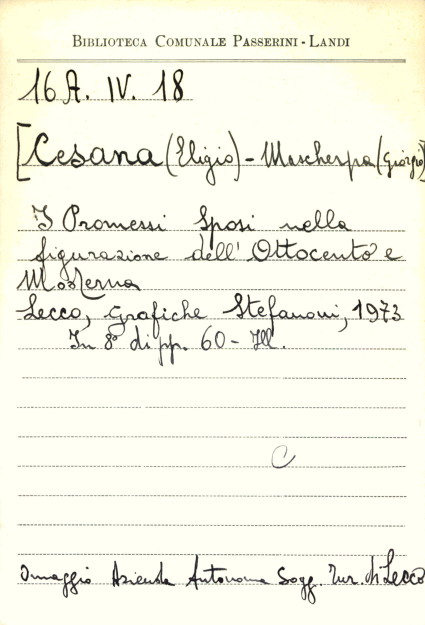 BIBLIOTECA COMUNALE PASSERINI - LANDI
16 A. IV. 18
[Cesana (Eligio) - Mascherpa (Giorgio)]
I Promessi Sposi nella
figurazione dell'Ottocento e
Moderna
Lecco, Grafiche Stefanoni, 1973
In 8° di pp. 60 - Ill.
C
Omaggio Azienda Autonoma Sogg. Tur. di Lecco